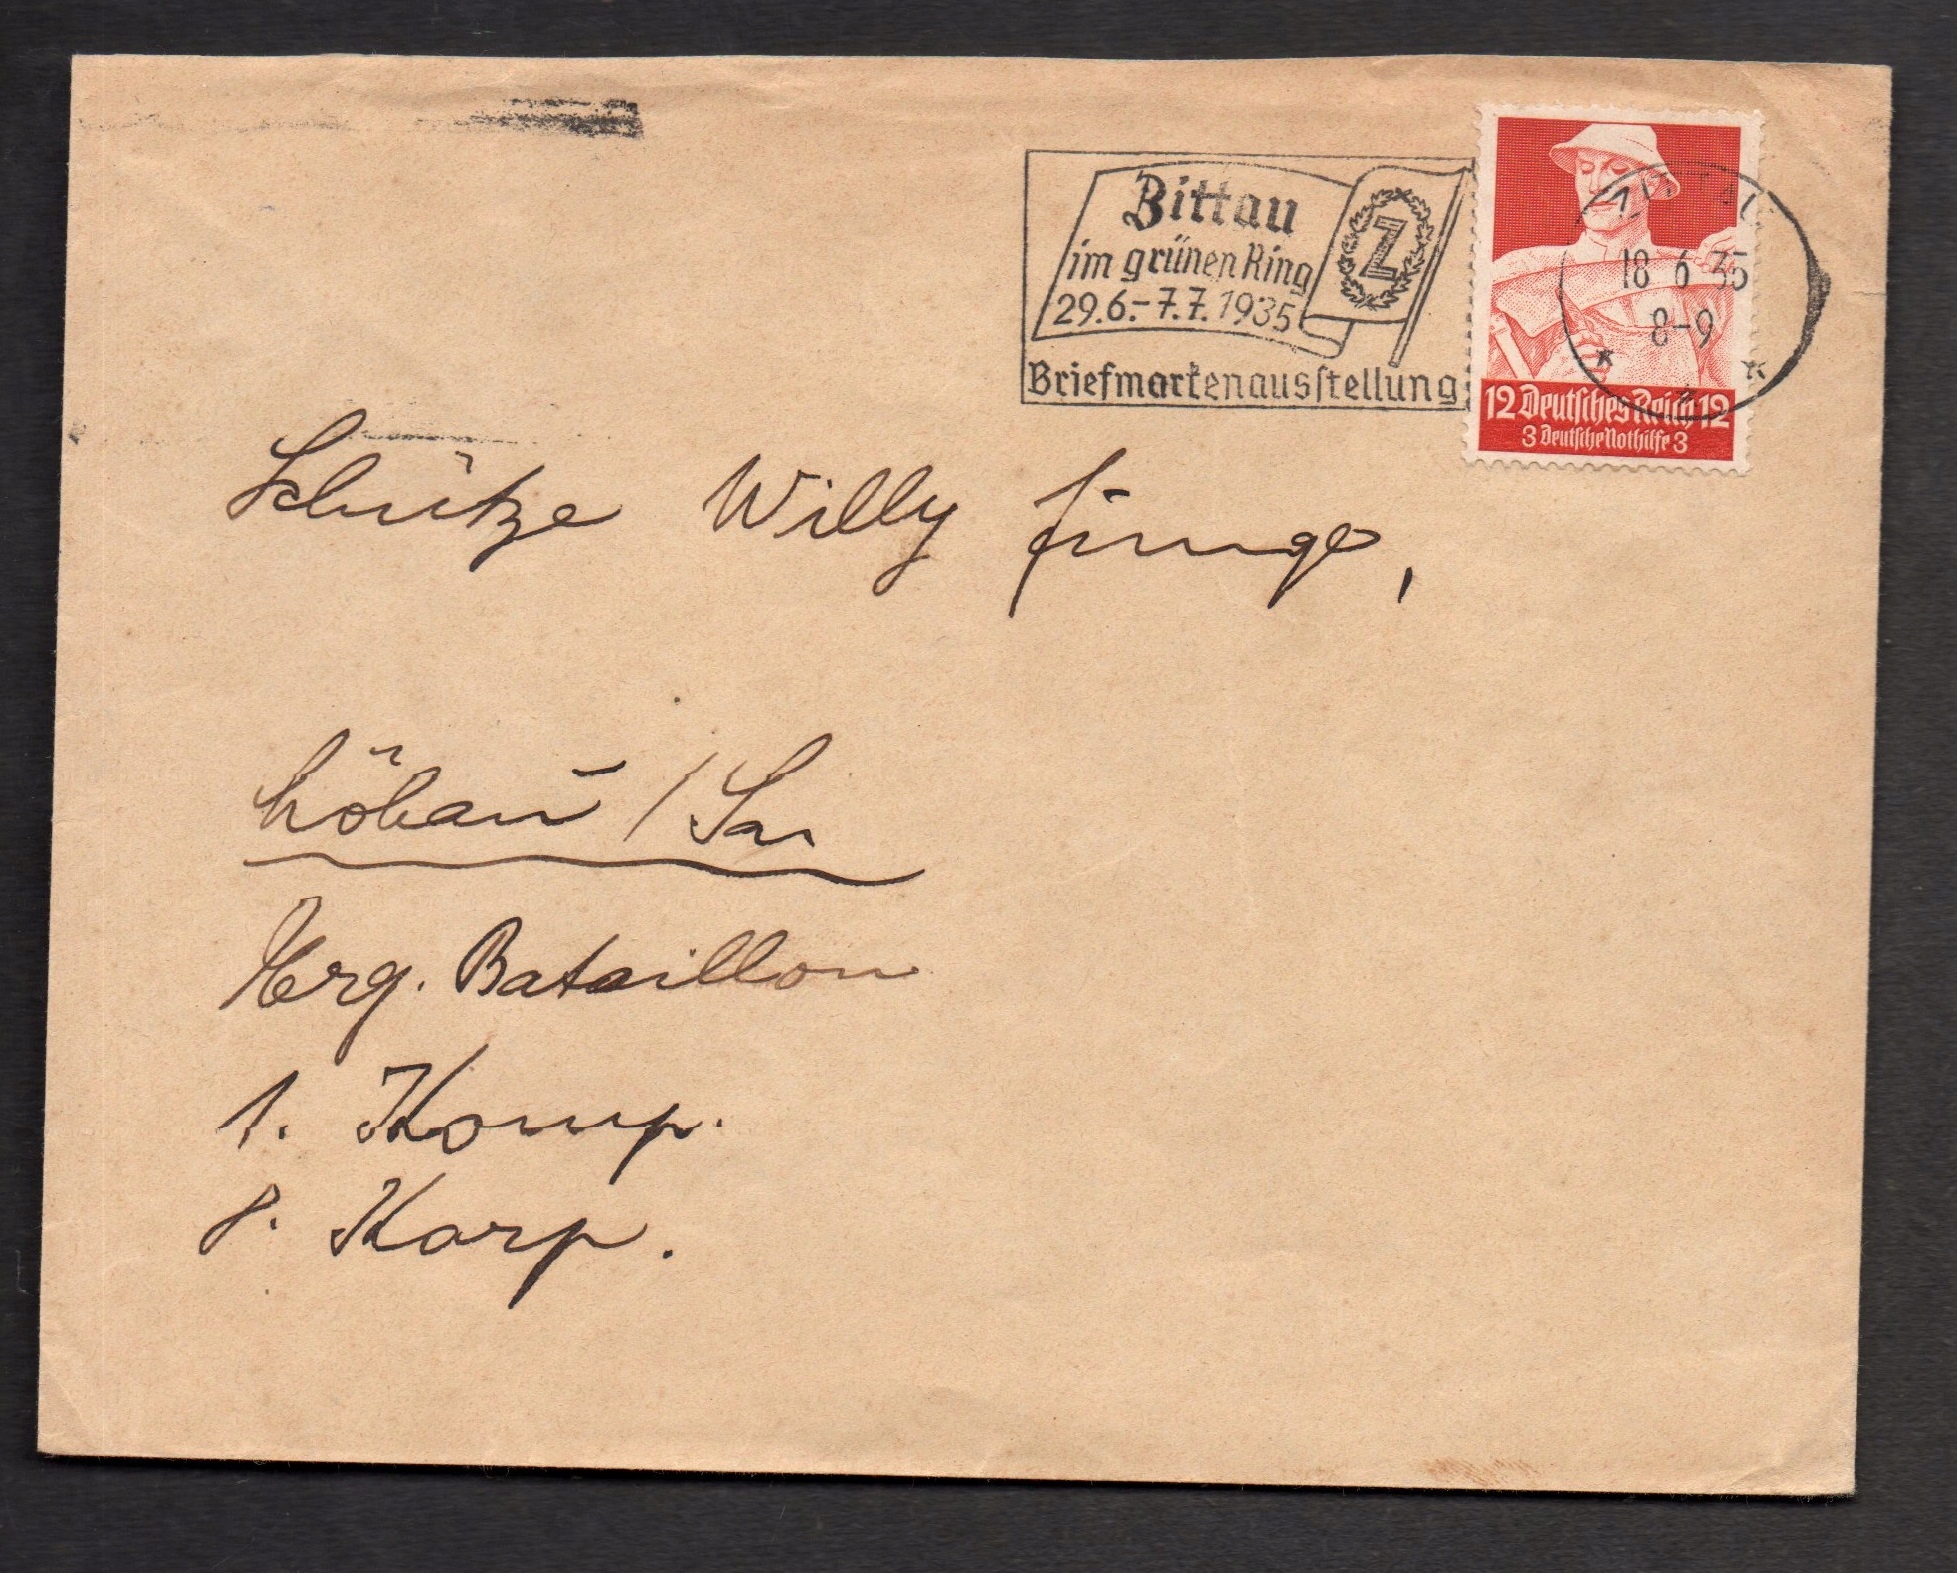 Zittau
im grünen Ring
29.6.-7.7.1935
Z
Briefmarkenausstellung
ZITTAU
18 6 35
8-9
12 Deutsches Reich 12
3 Deutsche Nothilfe 3
Schütze Willy
Löbau / Sa.
Erg. Bataillon
1. Komp.
8. Korp.